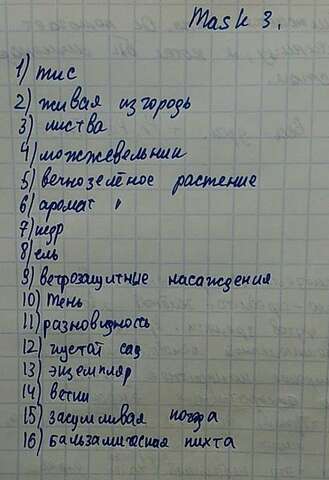 Mask 3.
1) тис
2) живая изгородь
3) листва
4) можжевельник
5) вечнозелёное растение
6) аромат
7) кедр
8) ель
9) ветрозащитные насаждения
10) тень
11) разновидность
12) густой сад
13) экземпляр
14) ветки
15) засушливая погода
16) бальзамическая пихта